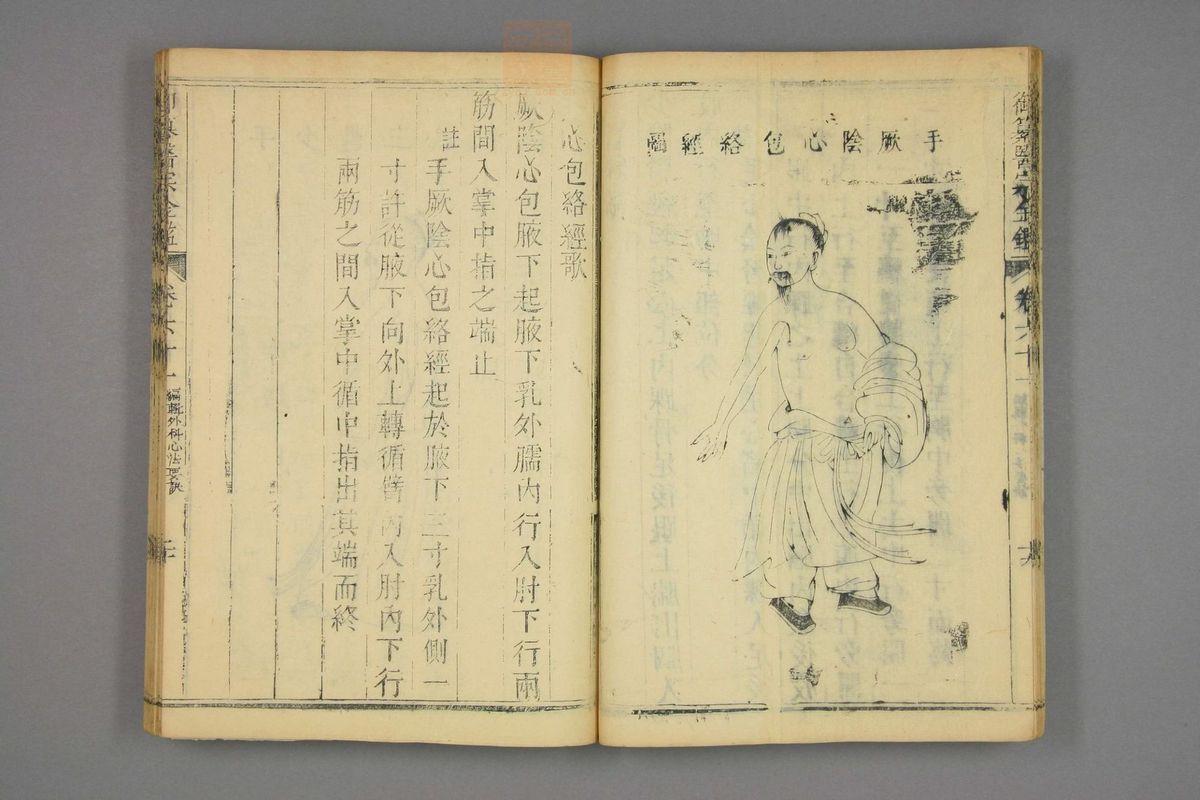 御纂醫宗金鑑
卷六十一
手厥陰心包絡經圖
心包絡經歌
厥陰心包腋下起腋下乳外臑內行入肘下行兩
筋間入掌中指之端止
註手厥陰心包絡經起於腋下三寸乳外側一
寸許從腋下向外上轉循臂內入肘內下行
兩筋之間入掌中循中指出其端而終
御纂醫宗金鑑
卷六十一
編輯外科心法要訣